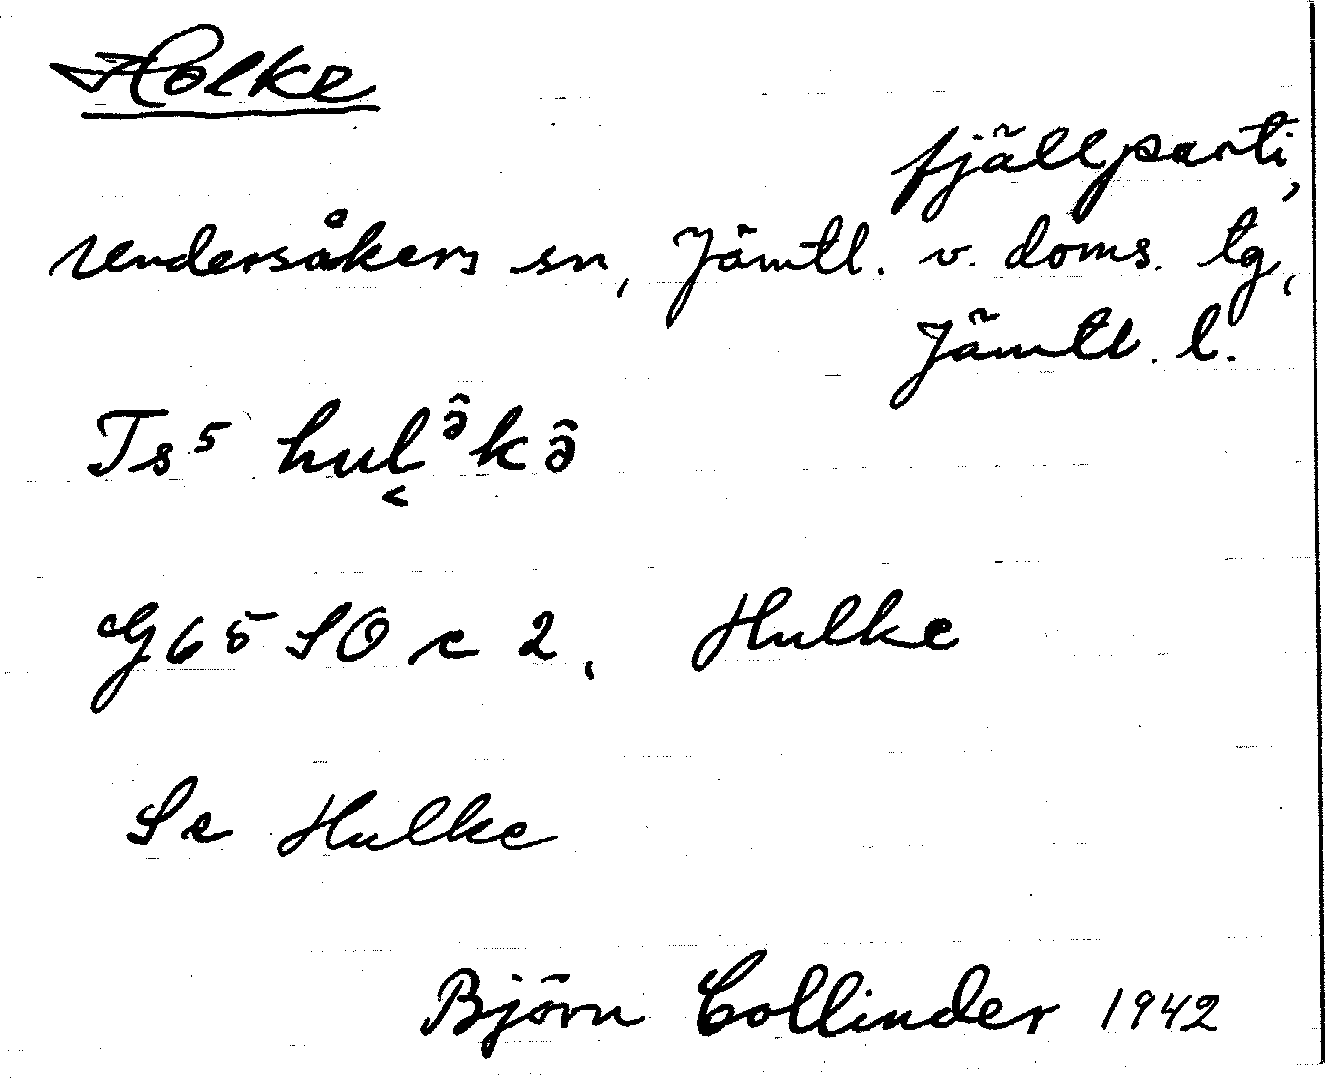 Holke
fjällparti,
Undersåkers sn, Jämtl. v. doms. tg,
Jämtl. l.
Ts⁵ hul̬ᵊ̂kə̂
G 65 SO c 2. Hulke
Se Hulke
Björn Collinder 1942